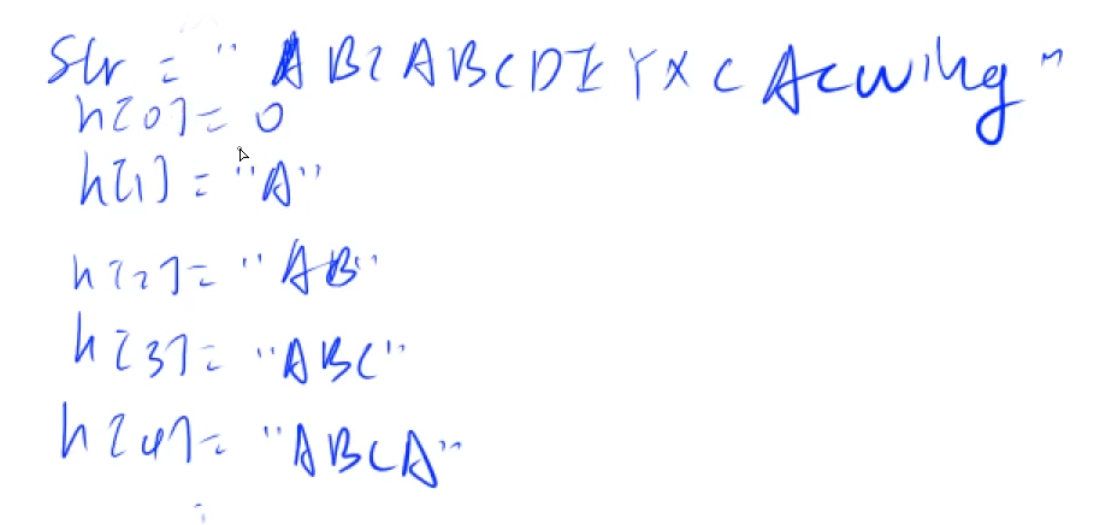 Str = "ABCABCDEYXCAcwing"
h[0] = 0
h[1] = "A"
h[2] = "AB"
h[3] = "ABC"
h[4] = "ABCA"
: